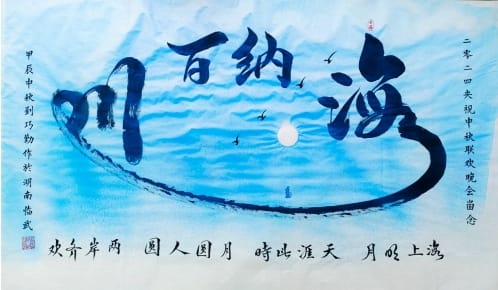 二零二四央视中秋联欢晚会留念
海纳百川
海上明月 天涯此時 月圆人圆 两岸齐欢
甲辰中秋刘巧勤作於湖南临武